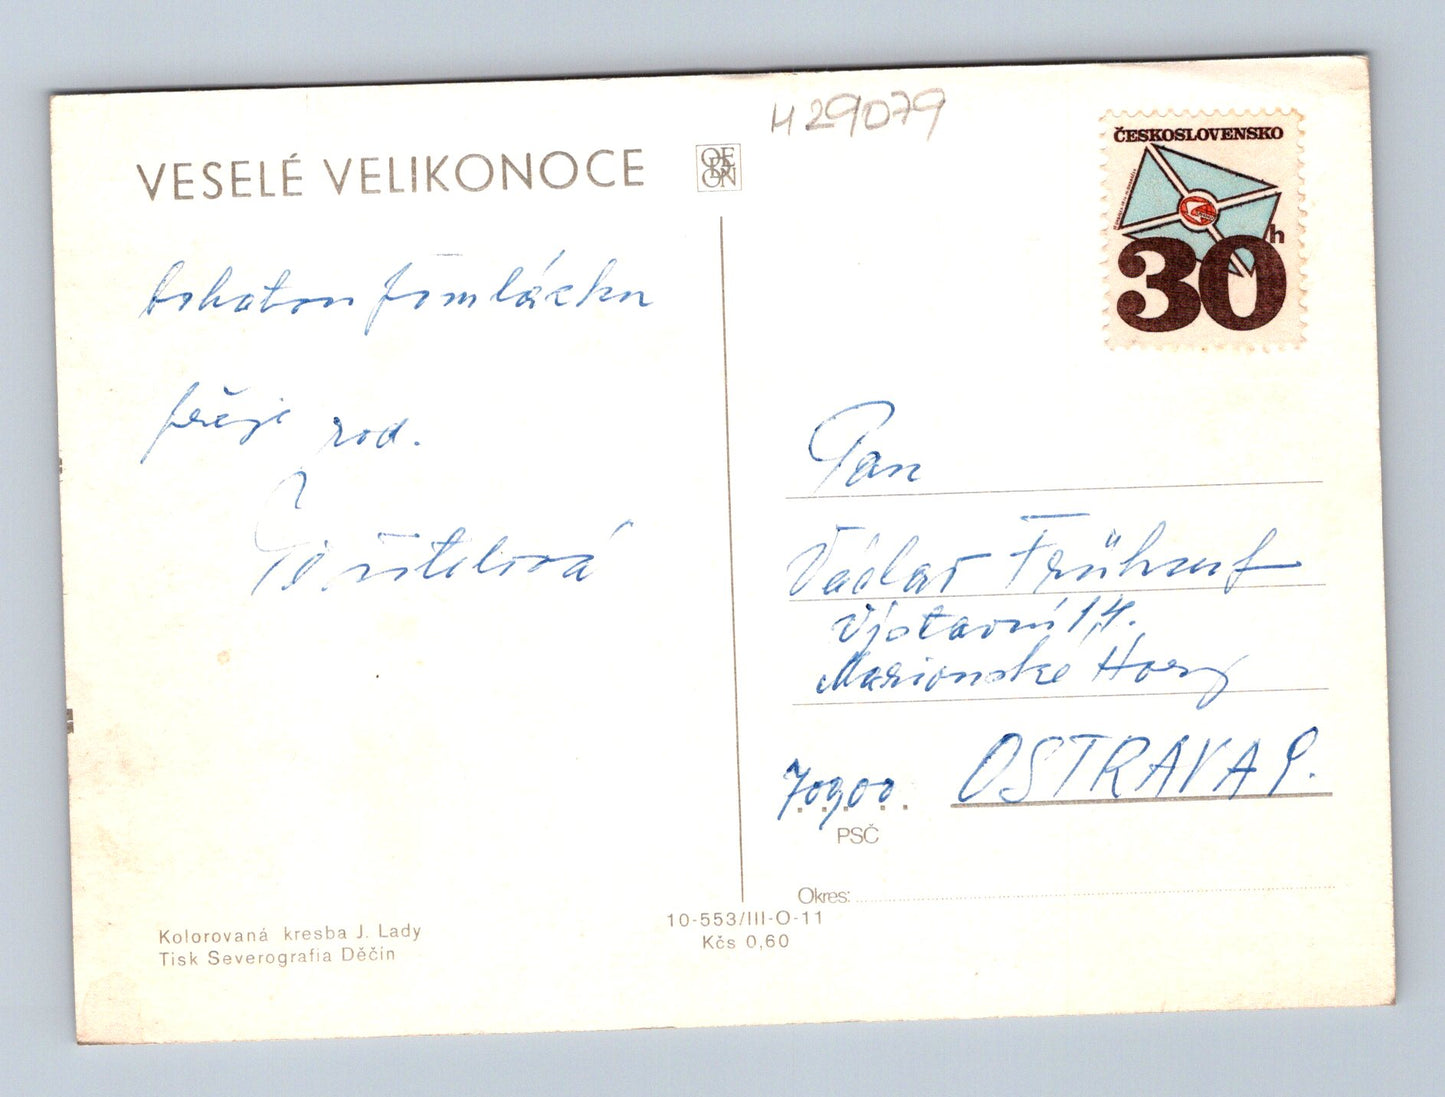 H 29079
VESELÉ VELIKONOCE
ODEON
ČESKOSLOVENSKO
30h
bohatou pomlázku
přeje rod.
Pan
Václav Frühauf
Výstavní 14.
Marianské Hory
70900. OSTRAVA 9.
PSČ
Okres:
10-553/III-O-11
Kčs 0,60
Kolorovaná kresba J. Lady
Tisk Severografia Děčín